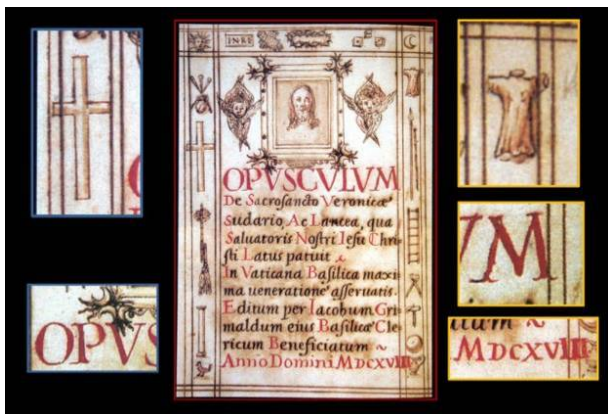 INRI
OPVSCVLVM
De Sacrosancto Veronicæ
Sudario, Ac Lancea, qua
Saluatoris Nostri Iesu Chri-
sti Latus patuit .
In Vaticana Basilica maxi
ma ueneratione asseruatis.
Editum per Iacobum Gri
maldum eius Basilicæ Cle
ricum Beneficiatum ~
Anno Domini MDCXVIII
OPVS
VM
MDCXVIII